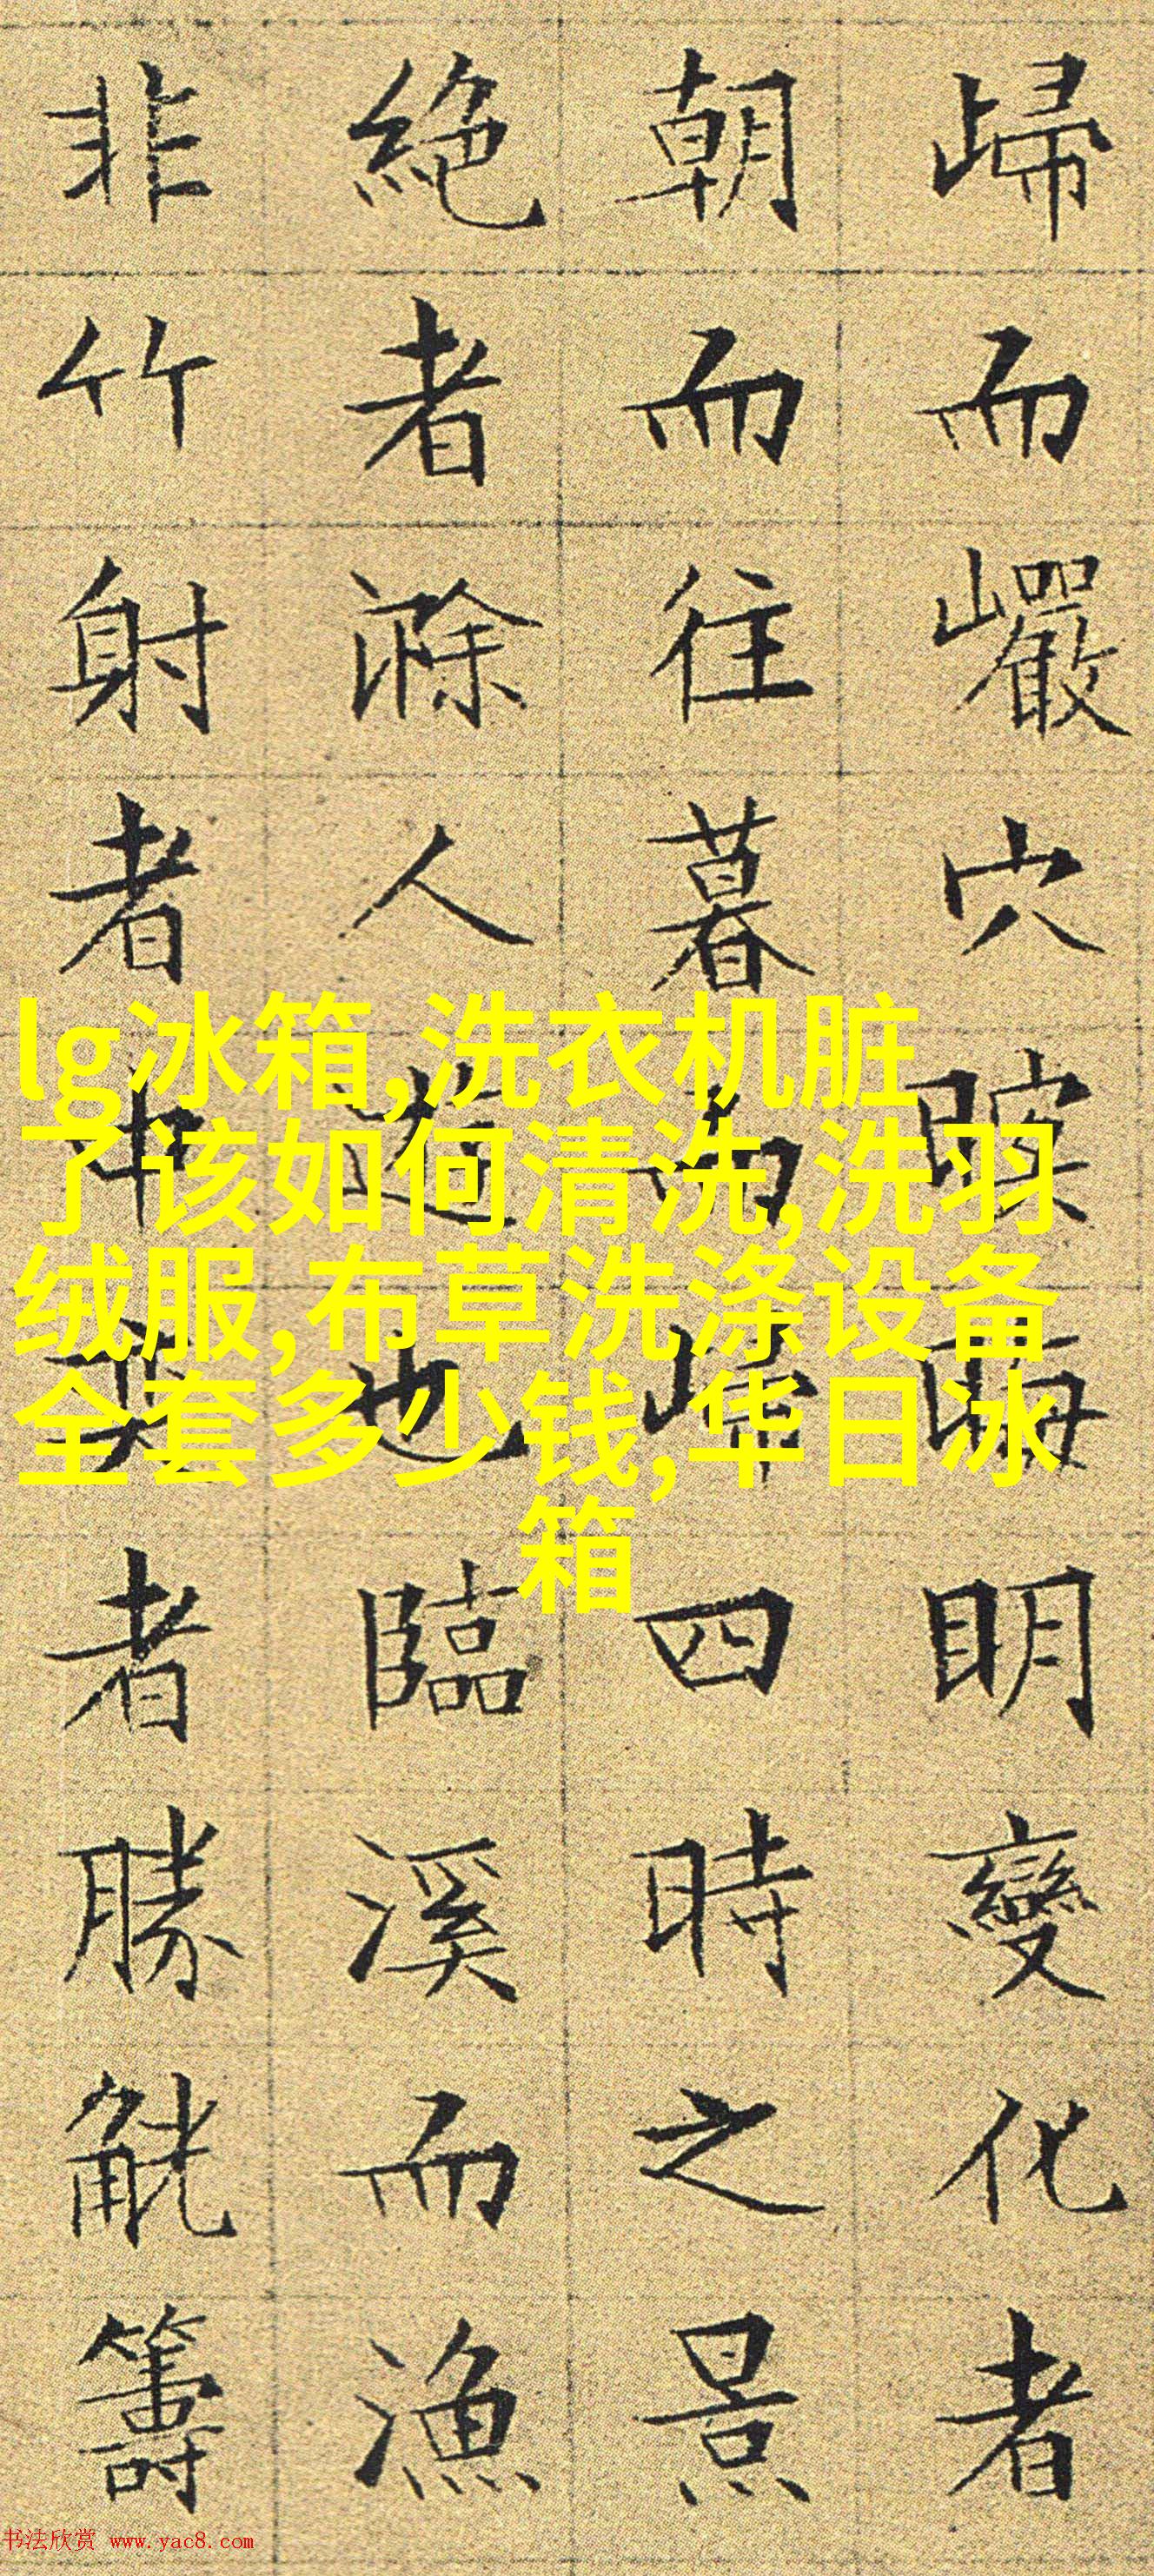 歸而巗穴暝晦明變化者
朝而往暮而歸四時之景
絶者滁人遊也臨溪而漁
非竹射者中奕者勝觥籌
lg冰箱,洗衣机脏
了该如何清洗,洗羽
绒服,布草洗涤设备
全套多少钱,华日冰
箱
书法欣赏 www.yac8.com